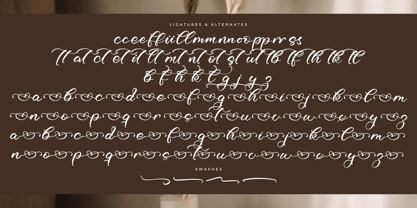 LIGATURES & ALTERNATES
cc ee ff ii ll mm nn oo pp rr ss
tt at ct et it ll mt nt ot st ut tb tf th tk tl
b f h k l g j y z
a b c d e f g h i j k l m
n o p q r s t u v w x y z
a b c d e f g h i j k l m
n o p q r s t u v w x y z
SWASHES